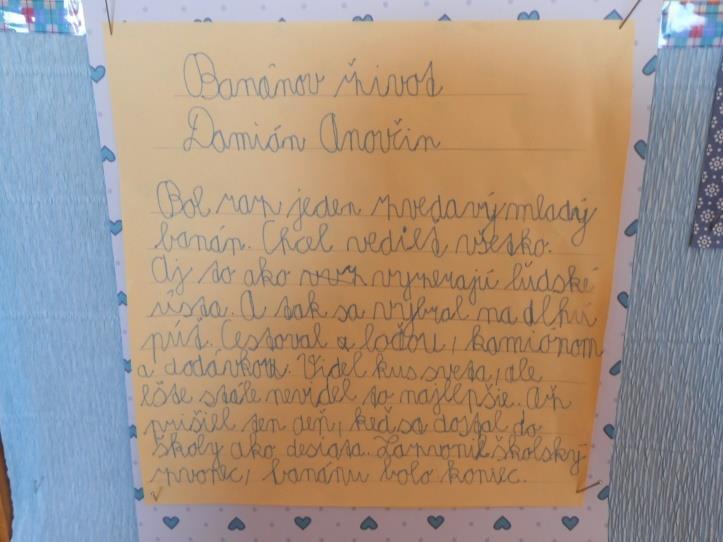 Banánov život
Damián Anovčin
Bol raz jeden zvedavý mladý
banán. Chcel vedieť všetko.
Aj to ako vyzerajú ľudské
ústa. A tak sa vybral na dlhú
púť. Cestoval loďou, kamiónom
a dodávkou. Videl kus sveta, ale
ešte stále nevidel to najlepšie. Až
prišiel ten deň, keď sa dostal do
školy ako desiata. Zazvonil školský
zvonec, banánu bolo koniec.